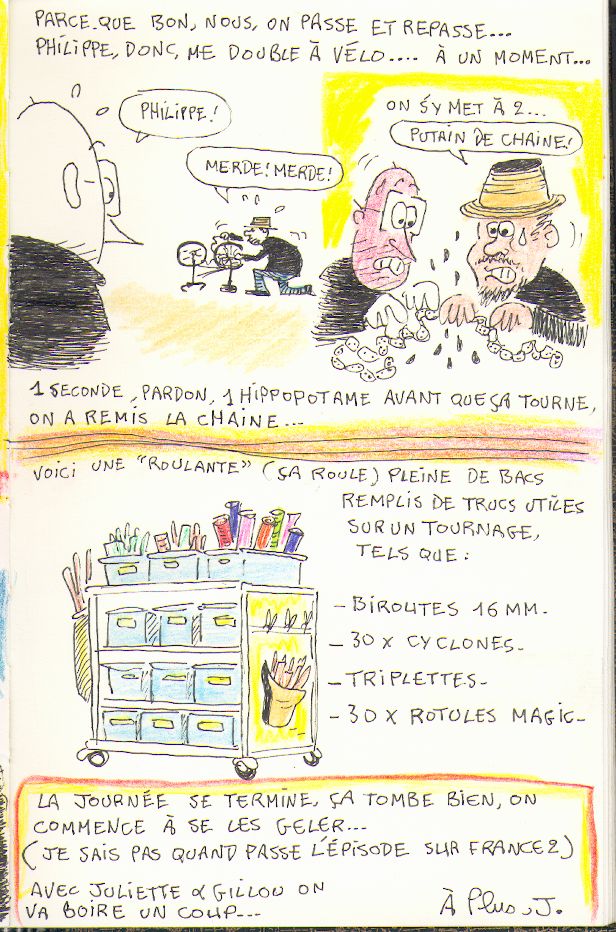 PARCE-QUE BON, NOUS, ON PASSE ET REPASSE...
PHILIPPE, DONC, ME DOUBLE À VÉLO.... À UN MOMENT...
PHILIPPE!
MERDE! MERDE!
ON S'Y MET À 2...
PUTAIN DE CHAINE!
1 SECONDE, PARDON, 1 HIPPOPOTAME AVANT QUE ÇA TOURNE,
ON A REMIS LA CHAINE...
VOICI UNE "ROULANTE" (ÇA ROULE) PLEINE DE BACS
REMPLIS DE TRUCS UTILES
SUR UN TOURNAGE,
TELS QUE:
- BIROUTES 16 MM-
- 30 X CYCLONES-
- TRIPLETTES-
- 30 X ROTULES MAGIC-
LA JOURNÉE SE TERMINE, ÇA TOMBE BIEN, ON
COMMENCE À SE LES GELER...
(JE SAIS PAS QUAND PASSE L'ÉPISODE SUR FRANCE 2)
AVEC JULIETTE & GILLOU ON
VA BOIRE UN COUP...
À Plus, J.